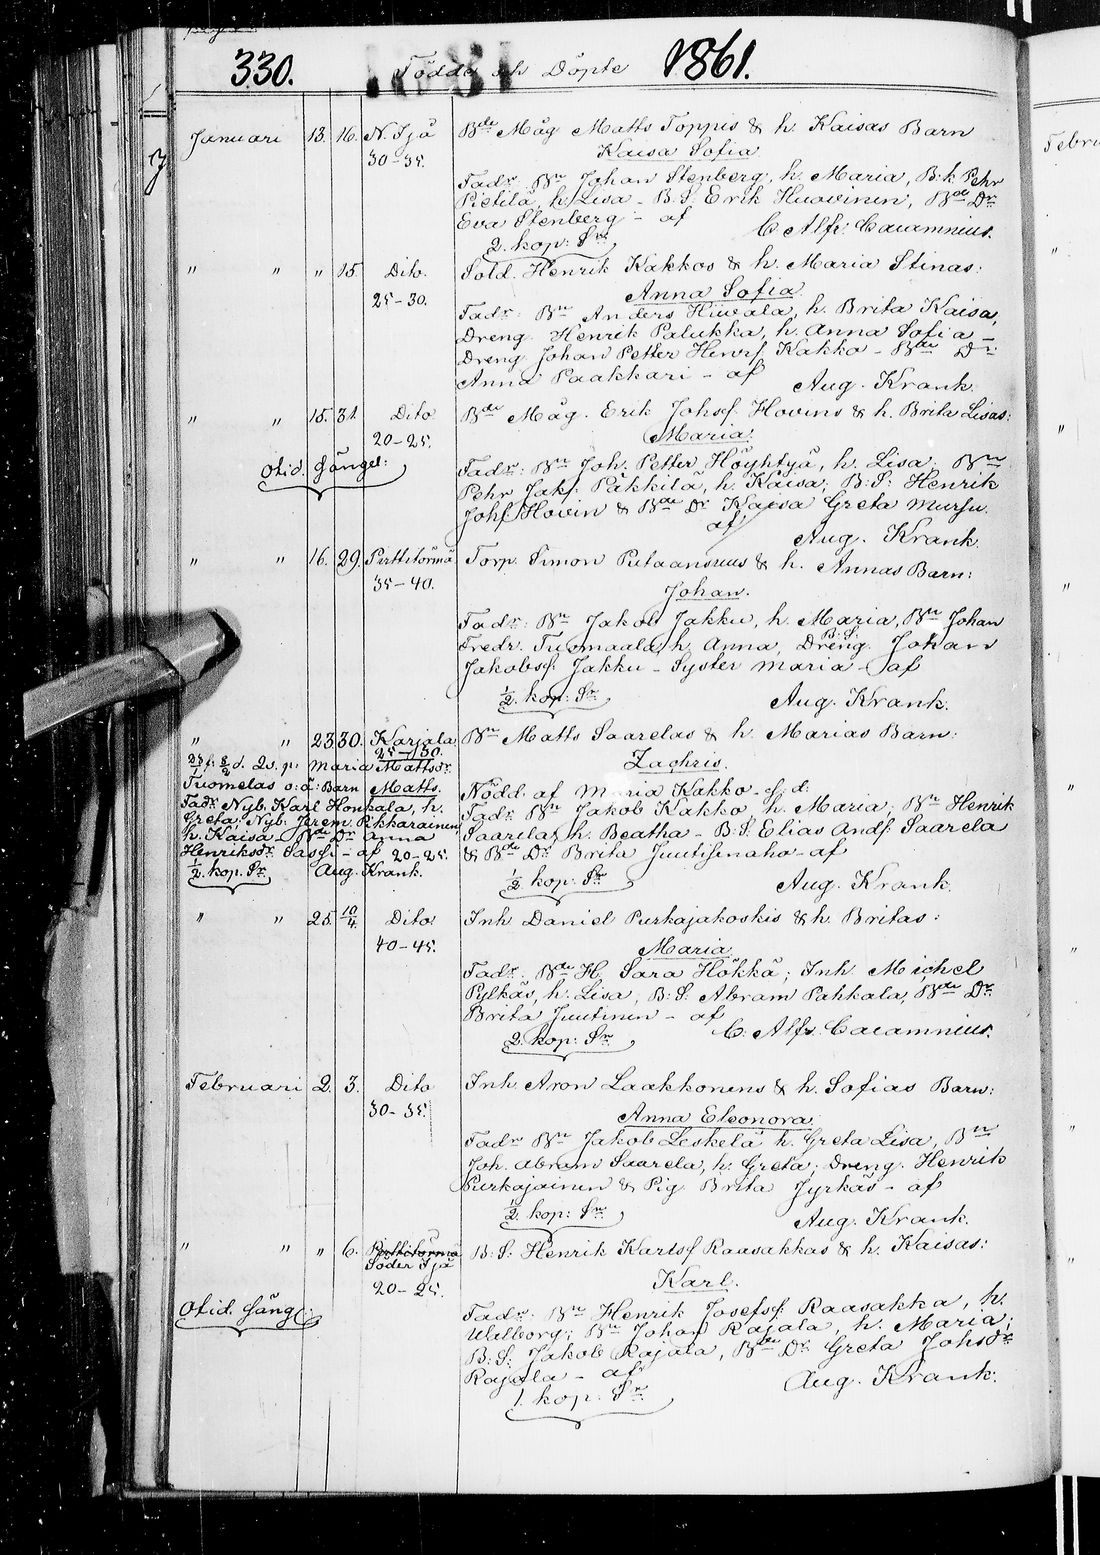 330. Födde och Döpte 1861.
Januari 13. 16. N. Ijä Bde Måg Matts Toppis & h. Kaisas Barn
30-35. Kaisa Sofia
Fadr Bn Johan Stenberg, h. Maria, B:k Pehr
Pietilä, h. Lisa - B.S. Erik Huovinen, Bde Dr
Eva Stenberg - af C. Alfr. Cacamnius.
2. kop: Sr
" " " 15. Dito. Sold. Henrik Kakkos & h. Maria Stinas:
25-30. Anna Sofia
Fadr: Bn Anders Hiivala, h. Brita Kaisa,
Dreng Henrik Palukka, h. Anna Sofia -
Dreng Johan Petter Henrs. Kakko - Bde Dr
Anna Paakkari - af Aug. Krank.
" " 15. 31. Dito Bde Måg. Erik Johsf. Hovins & h. Brita Lisas:
20-25. Maria.
Otid. Gånget: Fadr: Bn Joh. Petter Höyhtyä, h. Lisa, Bn
Pehr Jakf. Päkkilä, h. Kaisa; B:S: Henrik
Johf Hovin & Bde Dr Kaisa Greta Mursu.
af Aug. Krank.
" " 16. 29. Perttitörmä Torp. Simon Putaansuus & h. Annas Barn:
35-40. Johan.
Fadr: Bn Jakob Jakku, h. Maria, Bn Johan
Fredr. Tuomaala, h. Anna, Dreng B.S. Johan
Jakobsf. Jakku - Syster Maria - af
1/2. kop: Sr Aug. Krank.
" " 23. 30. Karjala Bn Matts Saarelas & h. Marias Barn:
25-30. Zachris.
Maria Mattsdr
Tuomelas o: ä: Barn Matts.
Fadr Nyb. Karl Honkala, h.
Greta, Nyb: Jerem. Pikkarainen,
h. Kaisa - Bde Dr Anna
Henriksdr Sassi - af 20-25.
1/2. kop. Sr Aug. Krank.
Nödd. af Maria Kakko
Fadr: Bn Jakob Kakko, h. Maria; Bn Henrik
Saarela, h. Beatha - B.S. Elias Andf. Saarela
& Bde Dr Brita Juutisenaho - af
1/2. kop: Sr Aug. Krank.
" " 25. 10/4. Dito Inh Daniel Purkajakoskis & h. Britas:
40-45. Maria.
Fadr. Bde H. Sara Hökkä; Inh. Michel
Pylkäs, h. Lisa, B:S. Abram Pahkala, Bde Dr.
Brita Juutinen - af C. Alfr. Cacamnius.
2. kop: Sr
Februari 2. 3. Dito Inh. Aron Laakkonens & h. Sofias Barn:
30-35. Anna Eleonora.
Fadr Bn Jakob Leskelä h. Greta Lisa, Bn
Joh. Abram Saarela, h. Greta; Dreng. Henrik
Purkajainen & Pig Brita Jyrkäs - af
1/2. kop: Sr Aug. Krank.
" " " 6. Perttitörmä B:S: Henrik Karlsf Raasakkas & h. Kaisas:
Söder Ijä
20-25. Karl.
Otid. Gång: Fadr: Bn Henrik Josefsf. Raasakka, h.
Walborg; Bn Johan Rajala, h. Maria;
B:S: Jakob Rajala, Bde Dr Greta Johsdr
Rajala - af Aug. Krank.
1. kop: Sr
Febru